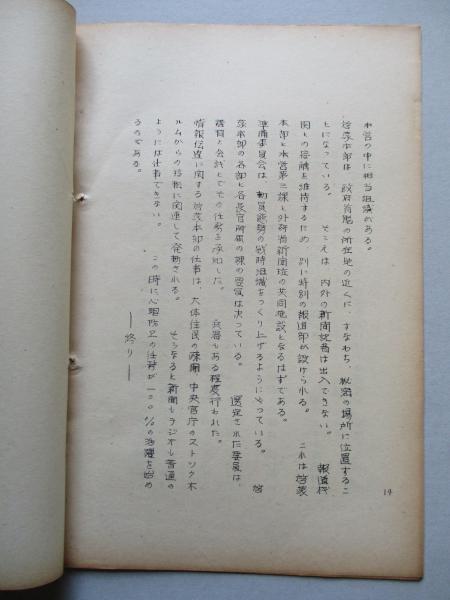 本営の中に相当組織がある。
啓発本部は、政府首脳の所在地の近くに、すなわち、秘密の場所に位置するこ
とになっている。 そこえは、内外の新聞記者は出入できない。 報道機
関との接触を維持するため、別に特別の報道部が設けられる。 これは啓発
本部と本営第三課と外務省新聞班の共同施設となるはずである。
準備委員会は、動員態勢の戦時組織をつくり上げるようになっている。 啓
発本部の各部と各長官所属の課の要員は決っている。 選定された要員は、
講習と会議とでその任務を承知した。 兵器もある程度行われた。
情報伝達に関する啓発本部の仕事は、大体住民の疎開、中央官庁のストック ホ
ルムからの移転に関連して発動される。 そうなると新聞もラジオも普通の
ようには仕事できない。 この時に心理防卫の任務が一〇〇%の活躍を始め
るのである。
——終り——
14